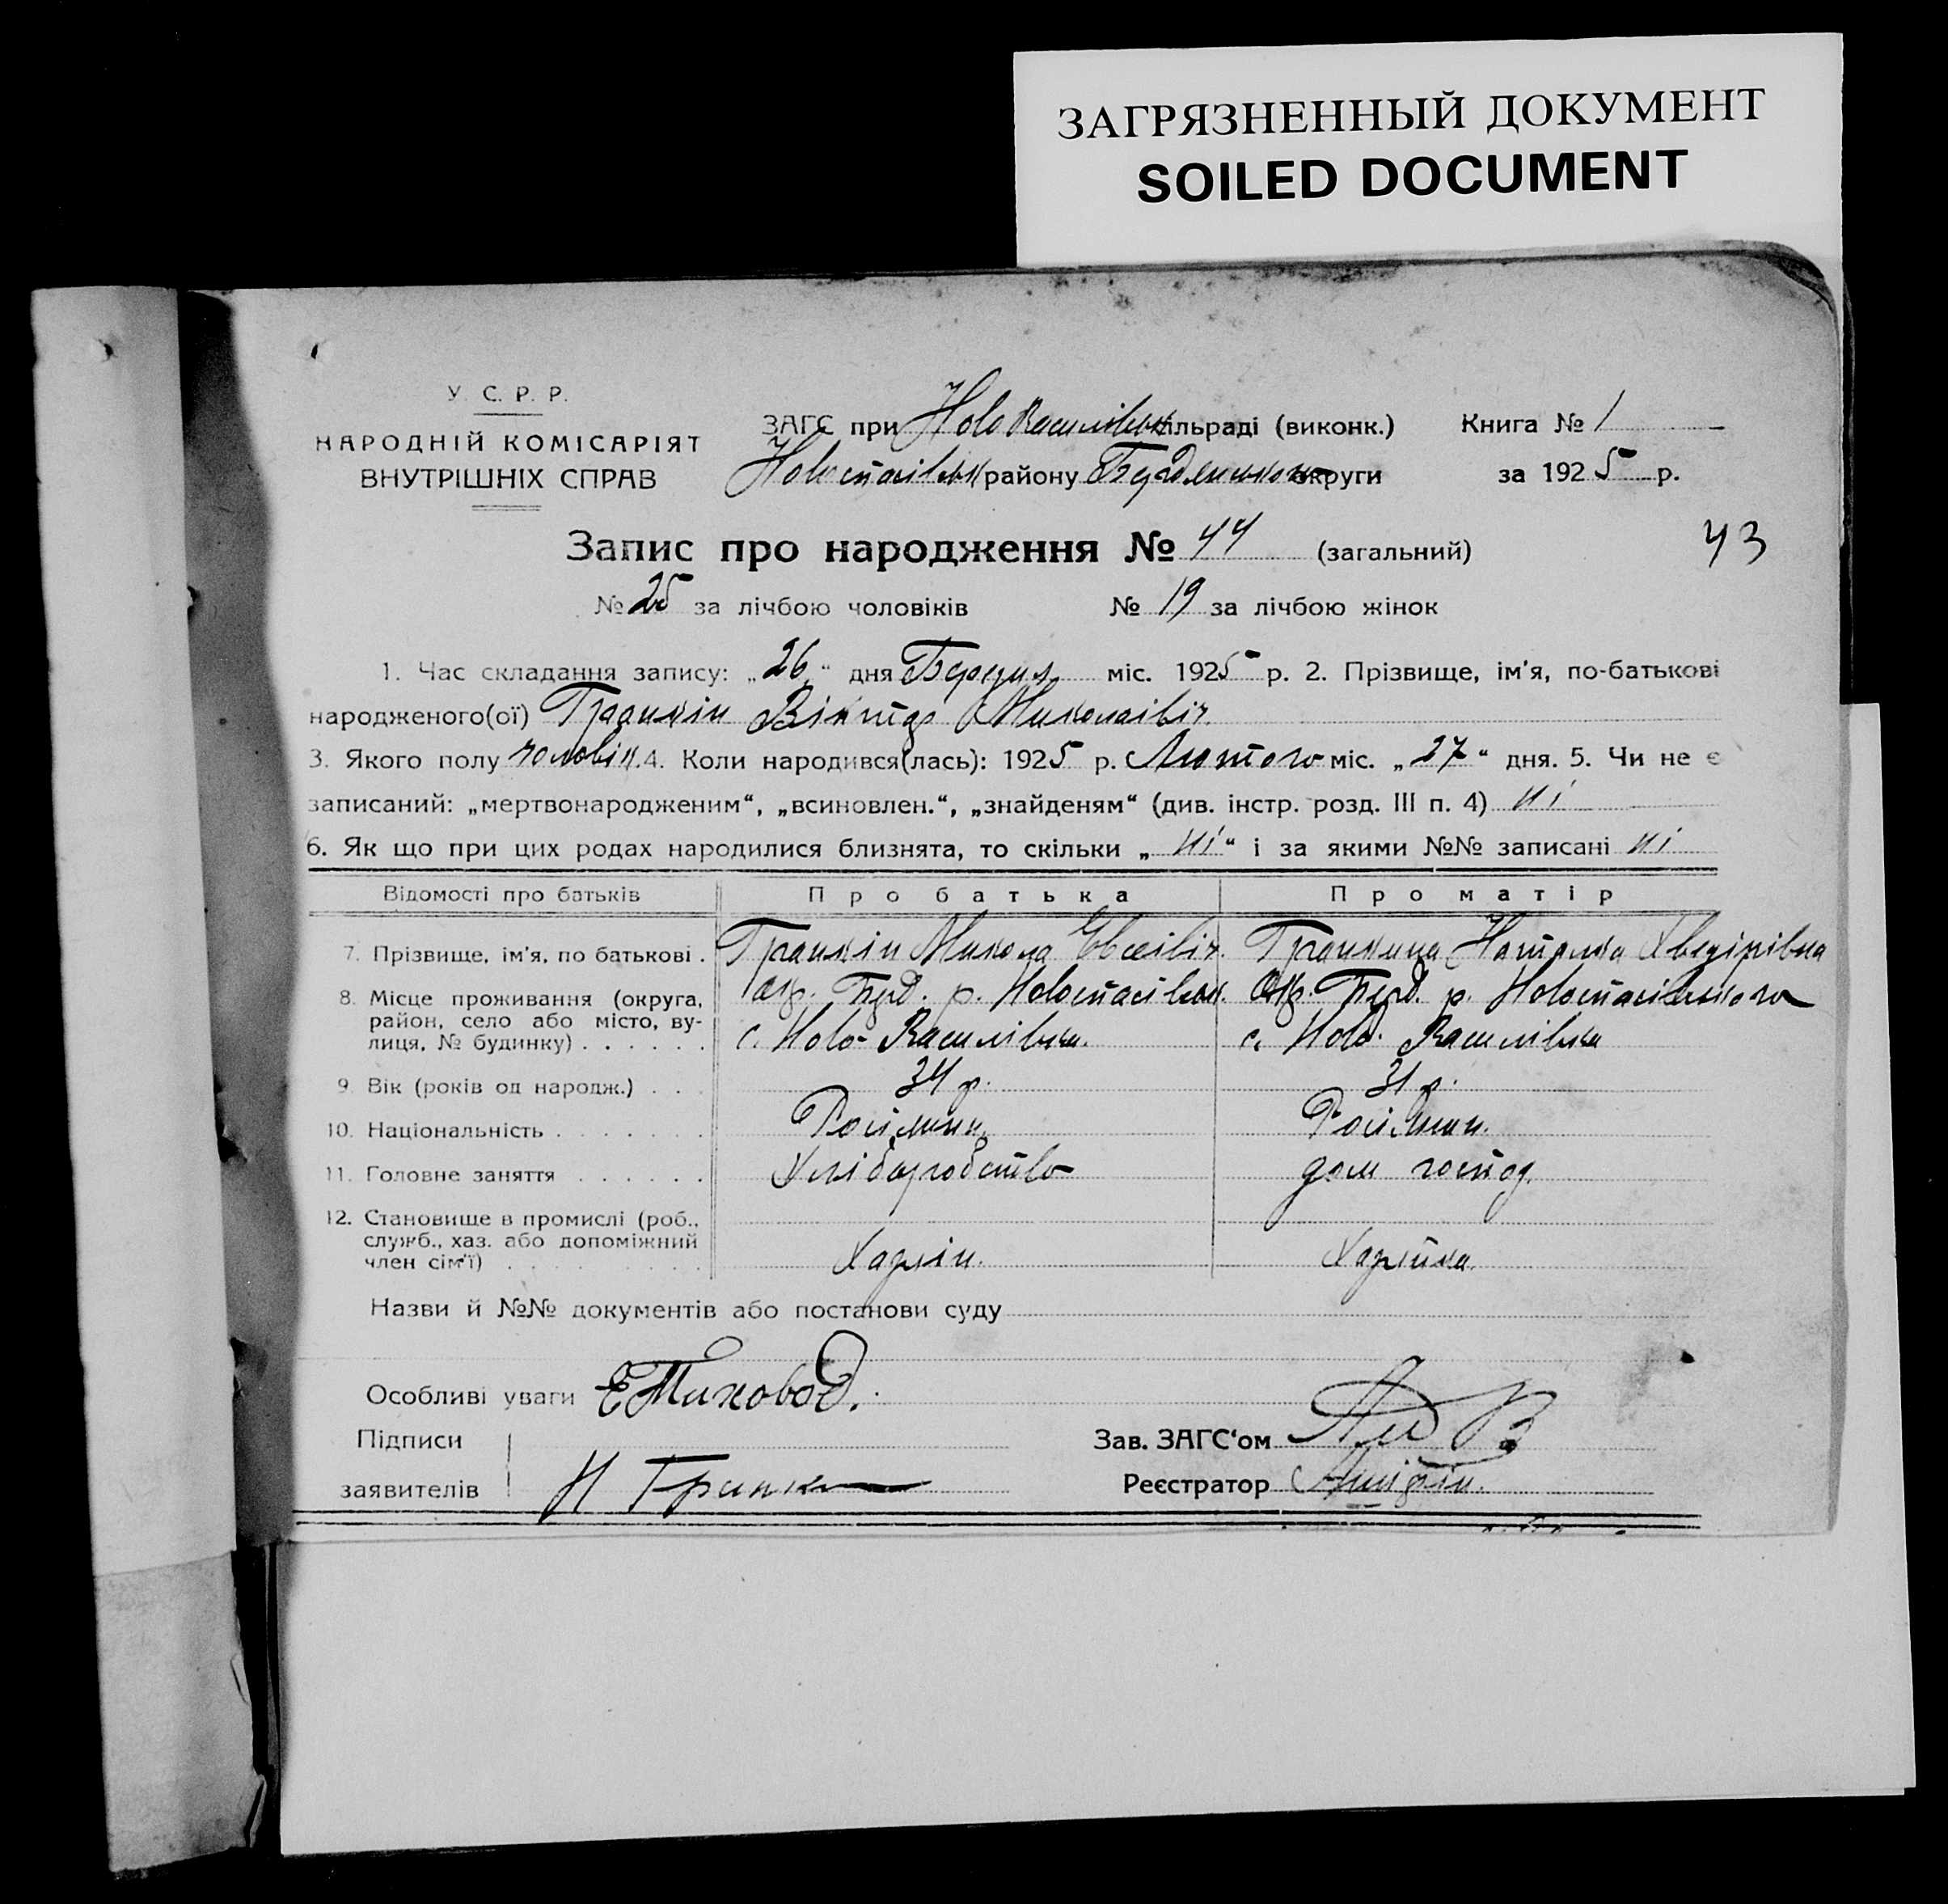 ЗАГРЯЗНЕННЫЙ ДОКУМЕНТ
SOILED DOCUMENT
У. С. Р. Р.
НАРОДНІЙ КОМІСАРІЯТ
ВНУТРІШНІХ СПРАВ
ЗАГС при Ново Василівськ сільраді (виконк.) Книга № 1
району Бердянської округи за 1925 р.
Запис про народження № 44 (загальний) 43
№ 25 за лічбою чоловіків № 19 за лічбою жінок
1. Час складання запису: „26“ дня міс. 1925 р. 2. Прізвище, ім'я, по-батькові
народженого(ої) Гранкін Віктор Миколаівіч
3. Якого полу чоловіч. 4. Коли народився(лась): 1925 р. Лютого міс. „27“ дня. 5. Чи не є
записаний: „мертвонародженим“, „всиновлен.“, „знайденям“ (див. інстр. розд. III п. 4) ні
6. Як що при цих родах народилися близнята, то скільки „ні“ і за якими №№ записані ні
Відомості про батьків Про батька Про матір
7. Прізвище, ім'я, по батькові . Гранкін Микола Євсеівіч. Гранкина Наталка Хведірівна
8. Місце проживання (округа, район, село або місто, вулиця, № будинку) . . . . . . Окр. Берд. р. с. Ново-Василівка. Окр. Берд. р. с. Ново-Василівка
9. Вік (років од народж.) . . . 34 р. 31 р.
10. Національність . . . . . . . Росіянин. Росіянин.
11. Головне заняття . . . . . . Хліборобство дом господ.
12. Становище в промислі (роб., служб., хаз. або допоміжний член сім'ї) . . . . . . . . .
Назви й №№ документів або постанови суду
Особливі уваги
Підписи Зав. ЗАГС'ом
заявителів Н Гранк Реєстратор